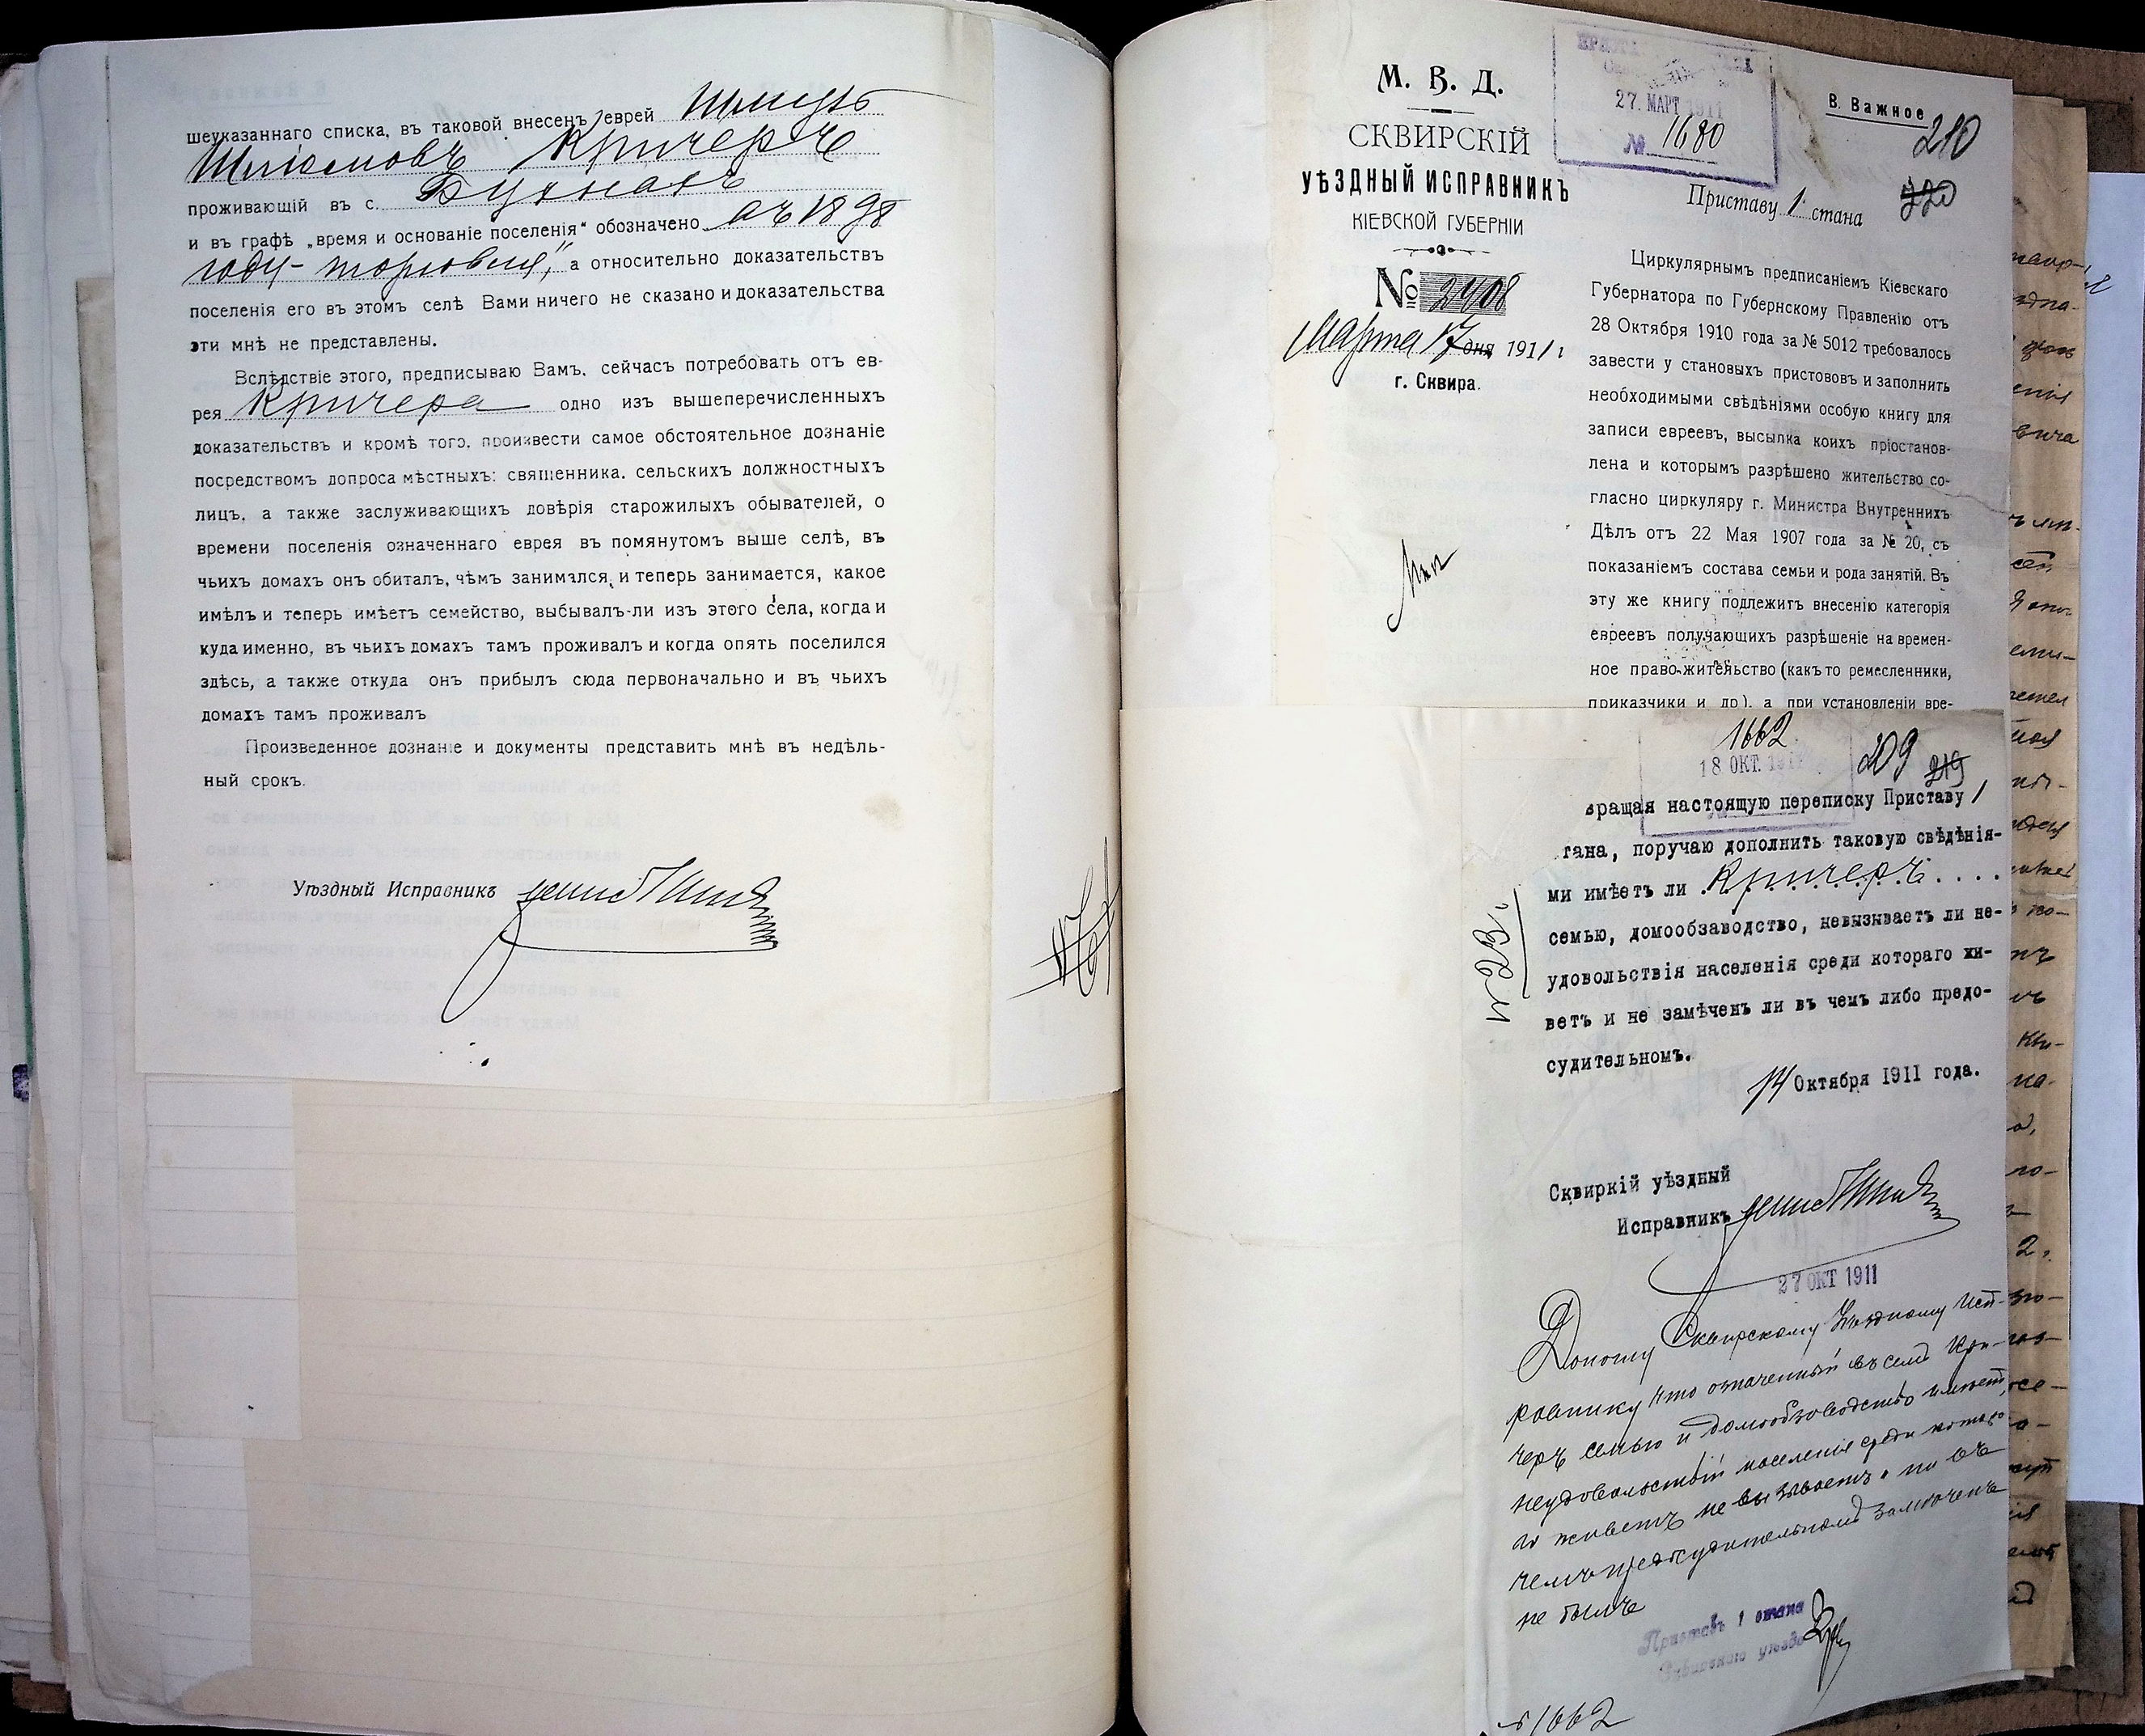 шеуказаннаго списка, въ таковой внесенъ еврей Шмуль
Шлiомовъ Кричеръ
проживающій въ с. Бухнахъ
и въ графѣ „время и основаніе поселенія“ обозначено „въ 1898
году - торговля“, а относительно доказательствъ
поселенія его въ этомъ селѣ Вами ничего не сказано и доказательства
эти мнѣ не представлены.
Вслѣдствіе этого, предписываю Вамъ, сейчасъ потребовать отъ ев-
рея Кричера одно изъ вышеперечисленныхъ
доказательствъ и кромѣ того, произвести самое обстоятельное дознаніе
посредствомъ допроса мѣстныхъ: священника, сельскихъ должностныхъ
лицъ, а также заслуживающихъ довѣрія старожилыхъ обывателей, о
времени поселенія означеннаго еврея въ помянутомъ выше селѣ, въ
чьихъ домахъ онъ обиталъ, чѣмъ занимался, и теперь занимается, какое
имѣлъ и теперь имѣетъ семейство, выбывалъ-ли изъ этого села, когда и
куда именно, въ чьихъ домахъ тамъ проживалъ и когда опять поселился
здѣсь, а также откуда онъ прибылъ сюда первоначально и въ чьихъ
домахъ тамъ проживалъ
Произведенное дознаніе и документы представить мнѣ въ недѣль-
ный срокъ.
Уѣздный Исправникъ
М. В. Д.
СКВИРСКІЙ
УѢЗДНЫЙ ИСПРАВНИКЪ
КІЕВСКОЙ ГУБЕРНІИ
№ 2408
Марта 17 дня 1911 г
г. Сквира.
27. МАРТ 1911
№ 1680
В. Важное
210
220
Приставу 1 стана
Циркулярнымъ предписаніемъ Кіевскаго
Губернатора по Губернскому Правленію отъ
28 Октября 1910 года за № 5012 требовалось
завести у становыхъ приставовъ и заполнить
необходимыми свѣдѣніями особую книгу для
записи евреевъ, высылка коихъ пріостанов-
лена и которымъ разрѣшено жительство со-
гласно циркуляру г. Министра Внутреннихъ
Дѣлъ отъ 22 Мая 1907 года за № 20, съ
показаніемъ состава семьи и рода занятій. Въ
эту же книгу подлежитъ внесенію категорія
евреевъ получающихъ разрѣшеніе на времен-
ное право-жительство (какъ то ремесленники,
приказчики и др), а при установленіи вре-
1662
18 ОКТ. 1911
209 219
вращая настоящую переписку Приставу 1
тана, поручаю дополнить таковую свѣдѣнія-
ми имѣетъ ли Кричеръ....
семью, домообзаводство, невызываетъ ли не-
удовольствія населенія среди котораго жи-
ветъ и не замѣченъ ли въ чемъ либо предо-
судительномъ.
14 Октября 1911 года.
Сквиркій уѣздный
Исправникъ
27 ОКТ 1911
Доношу Сквирскому Уѣздному Исп-
равнику что означенный въ семъ Кри-
черъ семью и домообзаводство имѣетъ,
неудовольствій населенія среди котора-
го живетъ не вызываетъ и ни въ
чемъ предсудительномъ замѣченъ
не былъ
Приставъ 1 стана
Сквирскаго уѣзда
1662